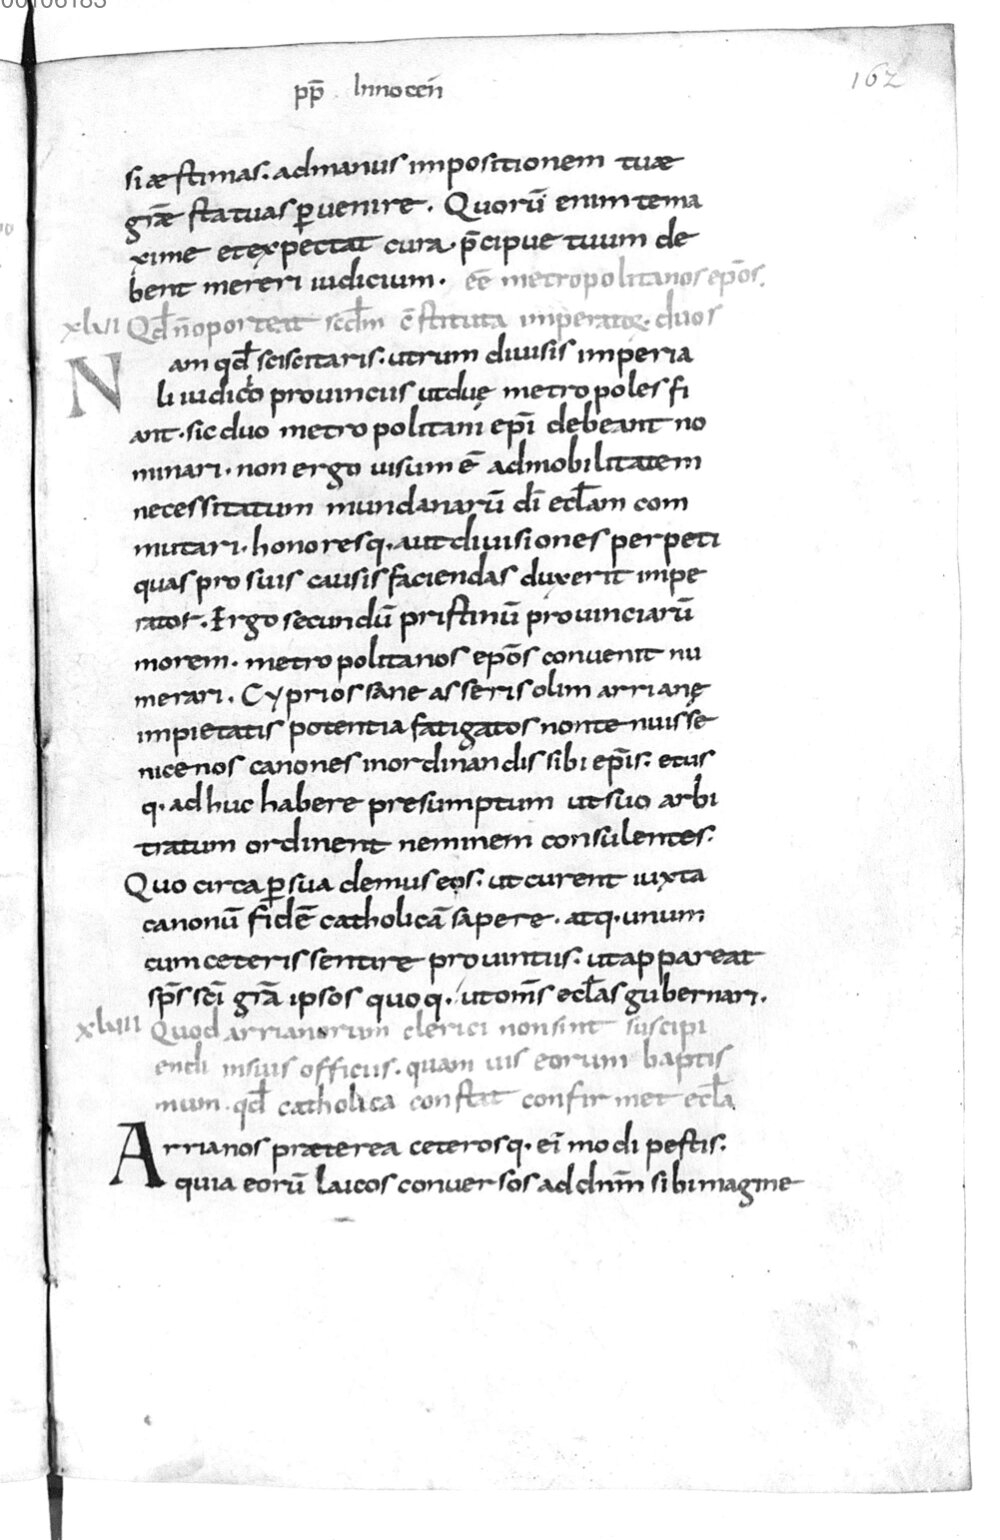 00106183
162
pp̄ Innocen̄
si æstimas: ad manus impositionem tuæ
grāe statuas ꝑuenire. Quorū enim te ma
xime et expectat cura. p̄cipue tuum de
bent mereri iudicium. eē metropolitanos ep̄os.
xlvii Qd̄ n̄ oporteat scd̄m c̄stituta imperatoꝝ. duos
Nam qd̄ sciscitaris: utrum diuisis imperia
li iudicio prouinciis ut duę metropoles fi
ant. sic duo metropolitani ep̄i debeant no
minari. non ergo uisum ē ad mobilitatem
necessitatum mundanarū dī eccl̄am com
mutari. honoresq. aut diuisiones perpeti
quas pro suis causis faciendas duxerit impe
rator. Ergo secundū pristinū prouinciarū
morem. metropolitanos ep̄os conuenit nu
merari. Cyprios sane asseris olim arrianę
impietatis potentia fatigatos non tenuisse
nicenos canones in ordinandis sibi ep̄is: et us
q. adhuc habere presumptum ut suo arbi
tratum ordinent neminem consulentes:
Quo circa ꝑsuademus eos: ut curent iuxta
canonū fidē catholicā sapere. atq. unum
cum ceteris sentire prouintiis: ut appareat
sp̄s sc̄i grā ipsos quoq. ut om̄s ecl̄as gubernari.
xlviii Quod arrianorum clerici non sint suscipi
endi in suis officiis. quamuis eorum baptis
mum. qd̄ catholica constat confirmet ecl̄a
Arrianos præterea ceterosq. ei modi pestis:
quia eorū laicos conuersos ad dn̄m sibi imagine